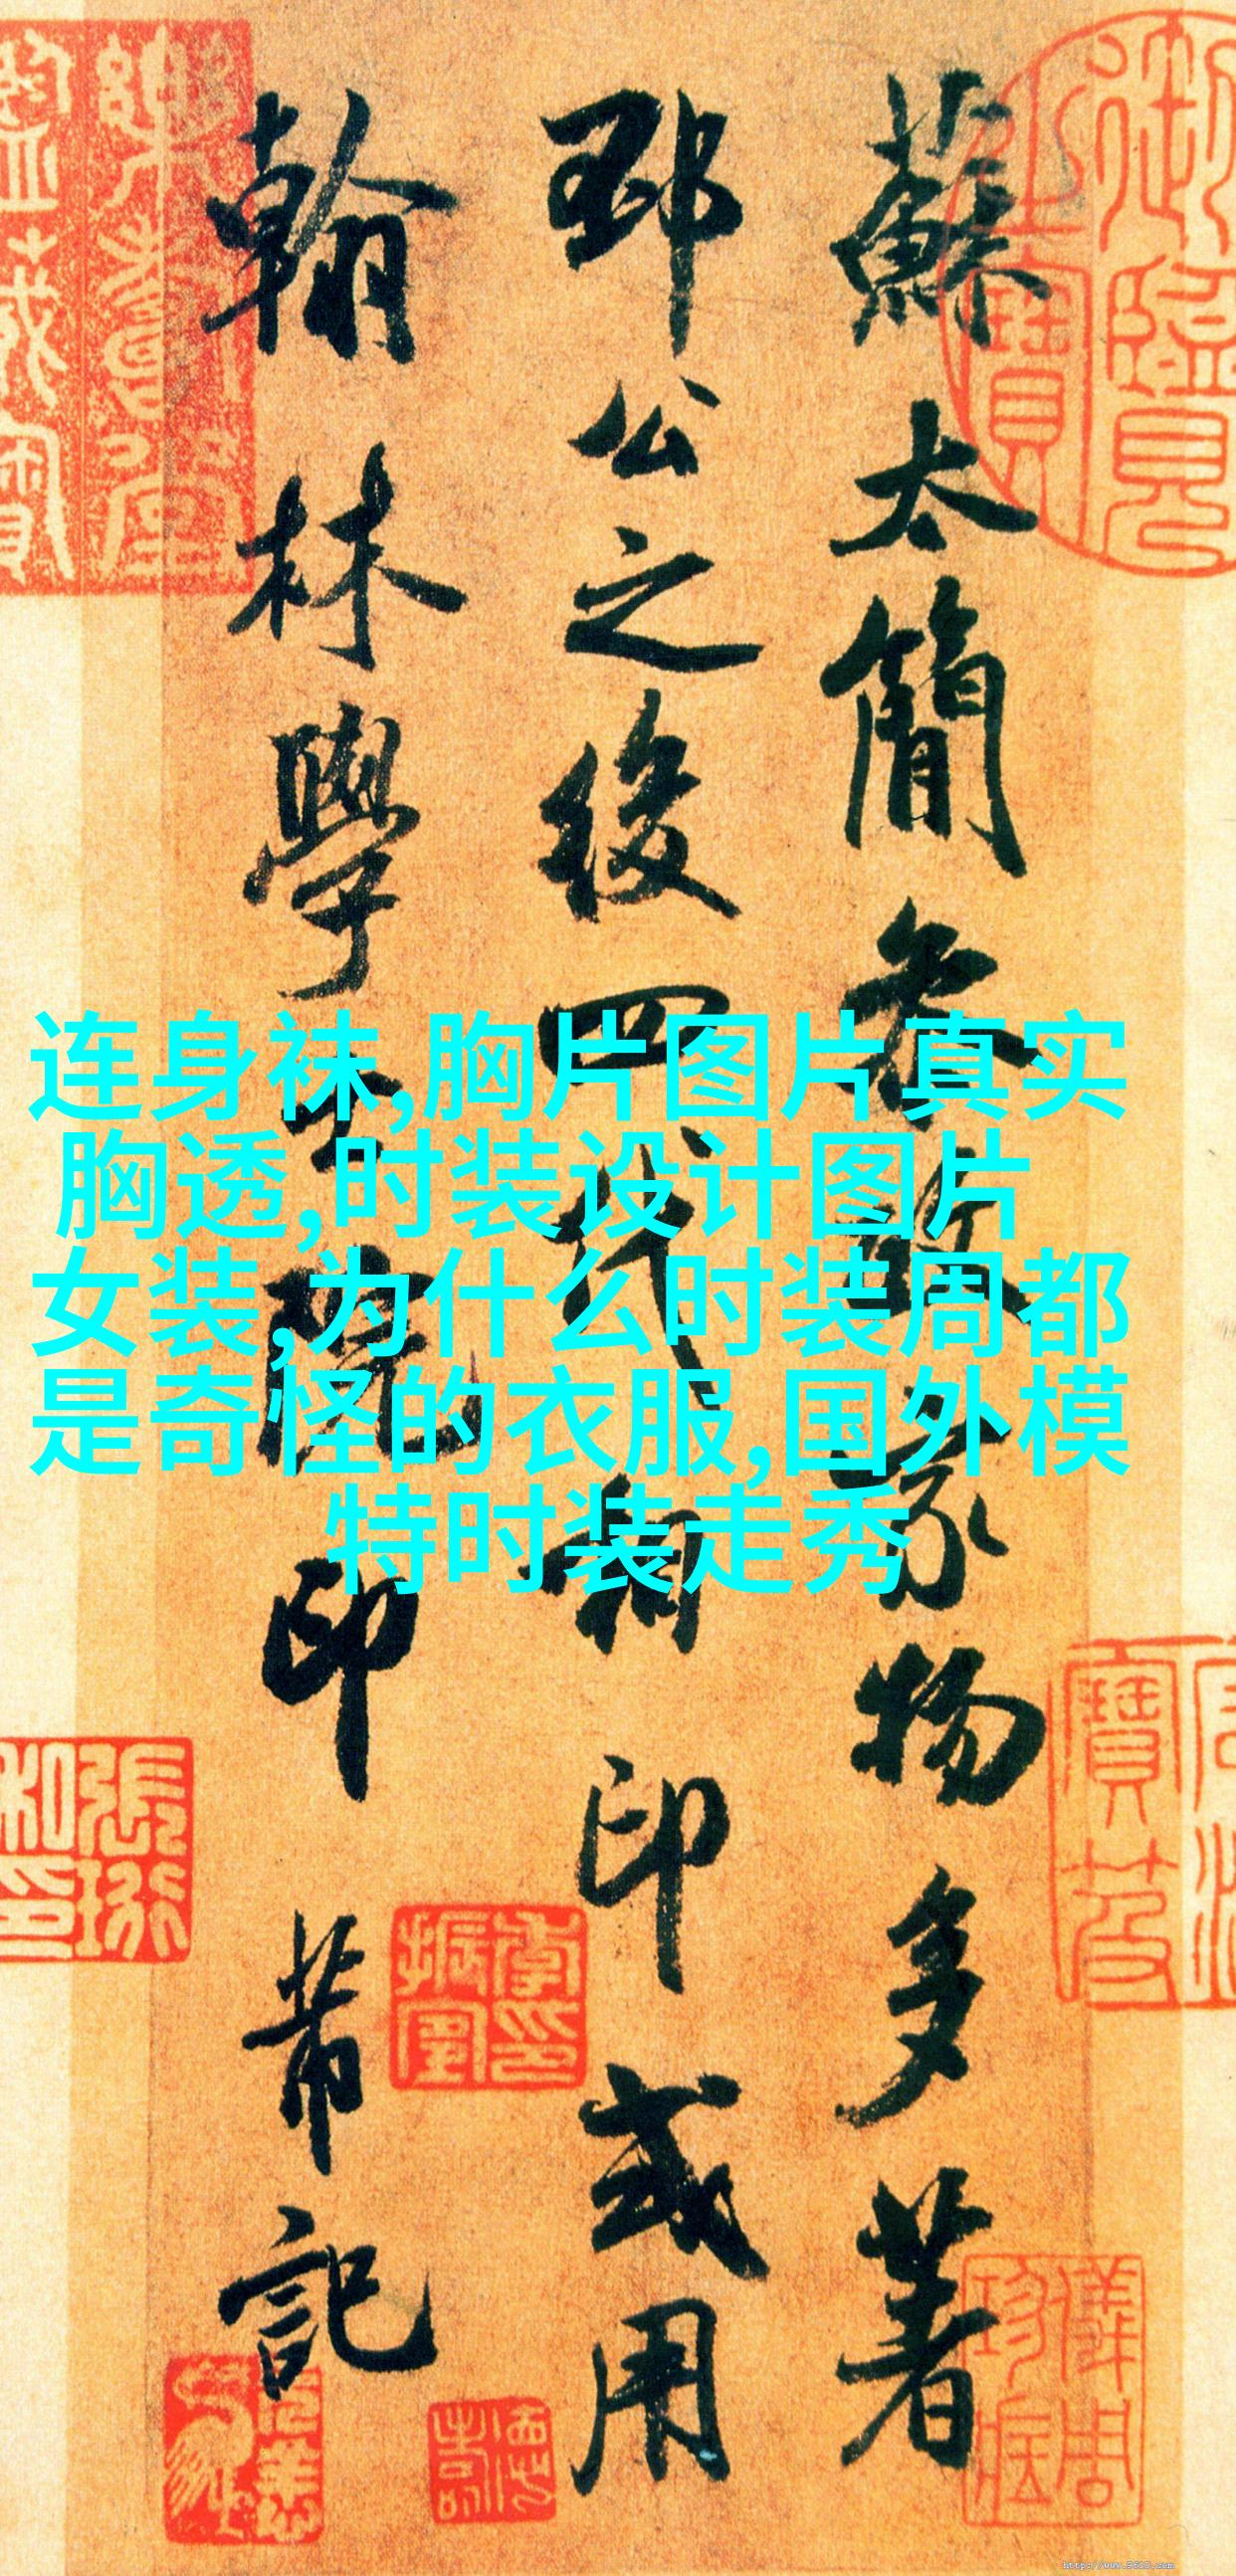 蘇太簡參政家物多著
邳公之後四代相印或用
翰林學士院印
芾記
连身袜,胸片图片真实
胸透,时装设计图片
女装,为什么时装周都
是奇怪的衣服,国外模
特时装走秀